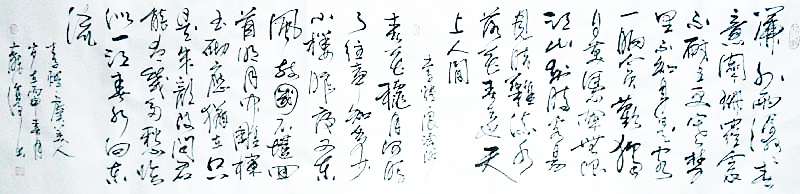 簾外雨潺潺春
意闌珊羅衾
不耐五更寒夢
里不知身是客
一晌貪歡獨
自莫憑欄無限
江山別時容易
見時難流水
落花春去也天
上人間
李煜浪淘沙
春花秋月何時
了往事知多少
小樓昨夜又東
風故國不堪回
首明月中雕欄
玉砌應猶在只
是朱顏改問君
能有幾多愁恰
似一江春水向東
流
李煜虞美人